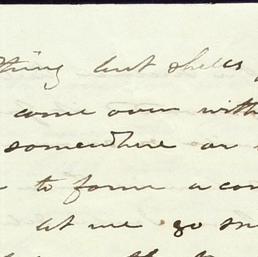 thing but shells
come over with
somewhere or
to form a con
let me go